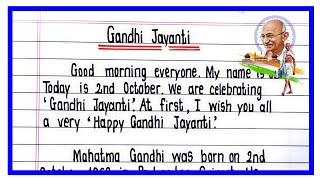 Gandhi Jayanti
Good morning everyone. My name is
Today is 2nd October. We are celebrating
'Gandhi Jayanti'. At first, I wish you all
a very 'Happy Gandhi Jayanti'.
Mahatma Gandhi was born on 2nd